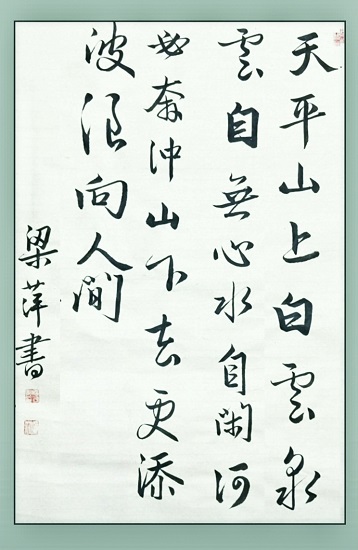 天平山上白雲泉
雲自無心水自閑何
必奔沖山下去更添
波浪向人間
梁萍書